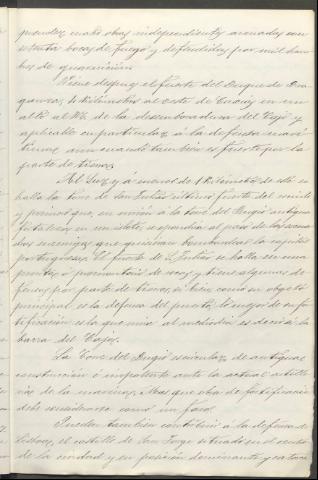 prenden cuatro obras independientes armadas con
setenta bocas de fuego y defendidas por mil hom
bres de guarnicion
Viene despues el fuerte del Duque de Bra
ganza, 4 Kilómetros al oeste de Caxias en un
alto al N. de la desembocadura del Tajo y
aplicable en particular á la defensa marí
tima, aun cuando tambien es fuerte por la
parte de tierra,
Al Sur y á menos de 1 Kilómetro de él se
halla la torre de San Julian último fuerte del recinto
y primero que, en union á la torre del Bugio antigua
fortaleza en un islote, se opondria al paso de las arma
das enemigas que quisieran bombardear la capital
portuguesa. El fuerte de S. Julian se halla en una
punta, ó promontorio de roca y tiene algunas de
fensas por parte de tierra, si bien como su objeto
principal es la defensa del puerto, lo mejor de su for
tificacion es la que mira al mediodia es decir á la
barra del Tajo.
La Torre del Bugio es circular de antigua
construccion é impotente ante la actual artille
ria de la marina. Mas que obra de fortificacion
debe considerarse como un faro.
Puedan tambien contribuir á la defensa de
Lisboa, el castillo de San Jorge situado en el centro
de la ciudad y en posicion dominante y cerca